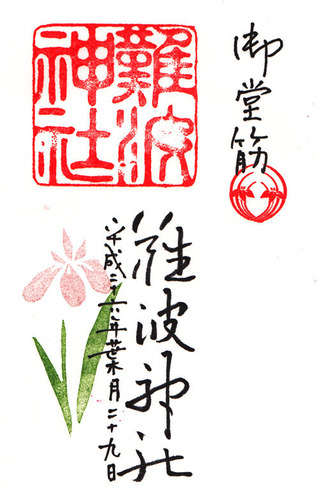 御堂筋
難波
神社
難波神社
平成二十六年葉月二十九日